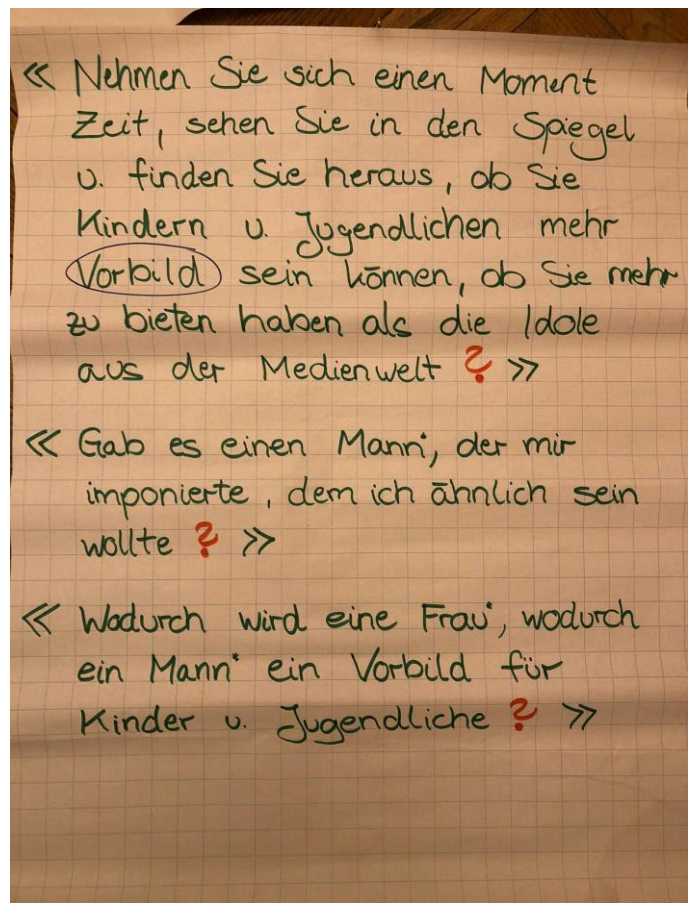 « Nehmen Sie sich einen Moment
Zeit, sehen Sie in den Spiegel
u. finden Sie heraus, ob Sie
Kindern u. Jugendlichen mehr
Vorbild sein können, ob Sie mehr
zu bieten haben als die Idole
aus der Medienwelt ? »
« Gab es einen Mann*, der mir
imponierte, dem ich ähnlich sein
wollte ? »
« Wodurch wird eine Frau*, wodurch
ein Mann* ein Vorbild für
Kinder u. Jugendliche ? »